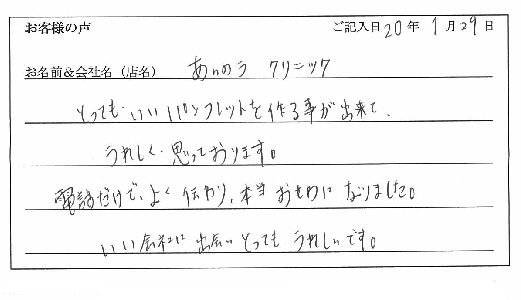 お客様の声 ご記入日 20 年 1 月 29 日
お名前&会社名（店名） あいのう クリニック
とっても いい パンフレットを 作る事が 出来て、
うれしく 思っております。
電話だけで、よく 伝わり、本当 おせわに なりました。
いい 会社に 出会い とっても うれしいです。